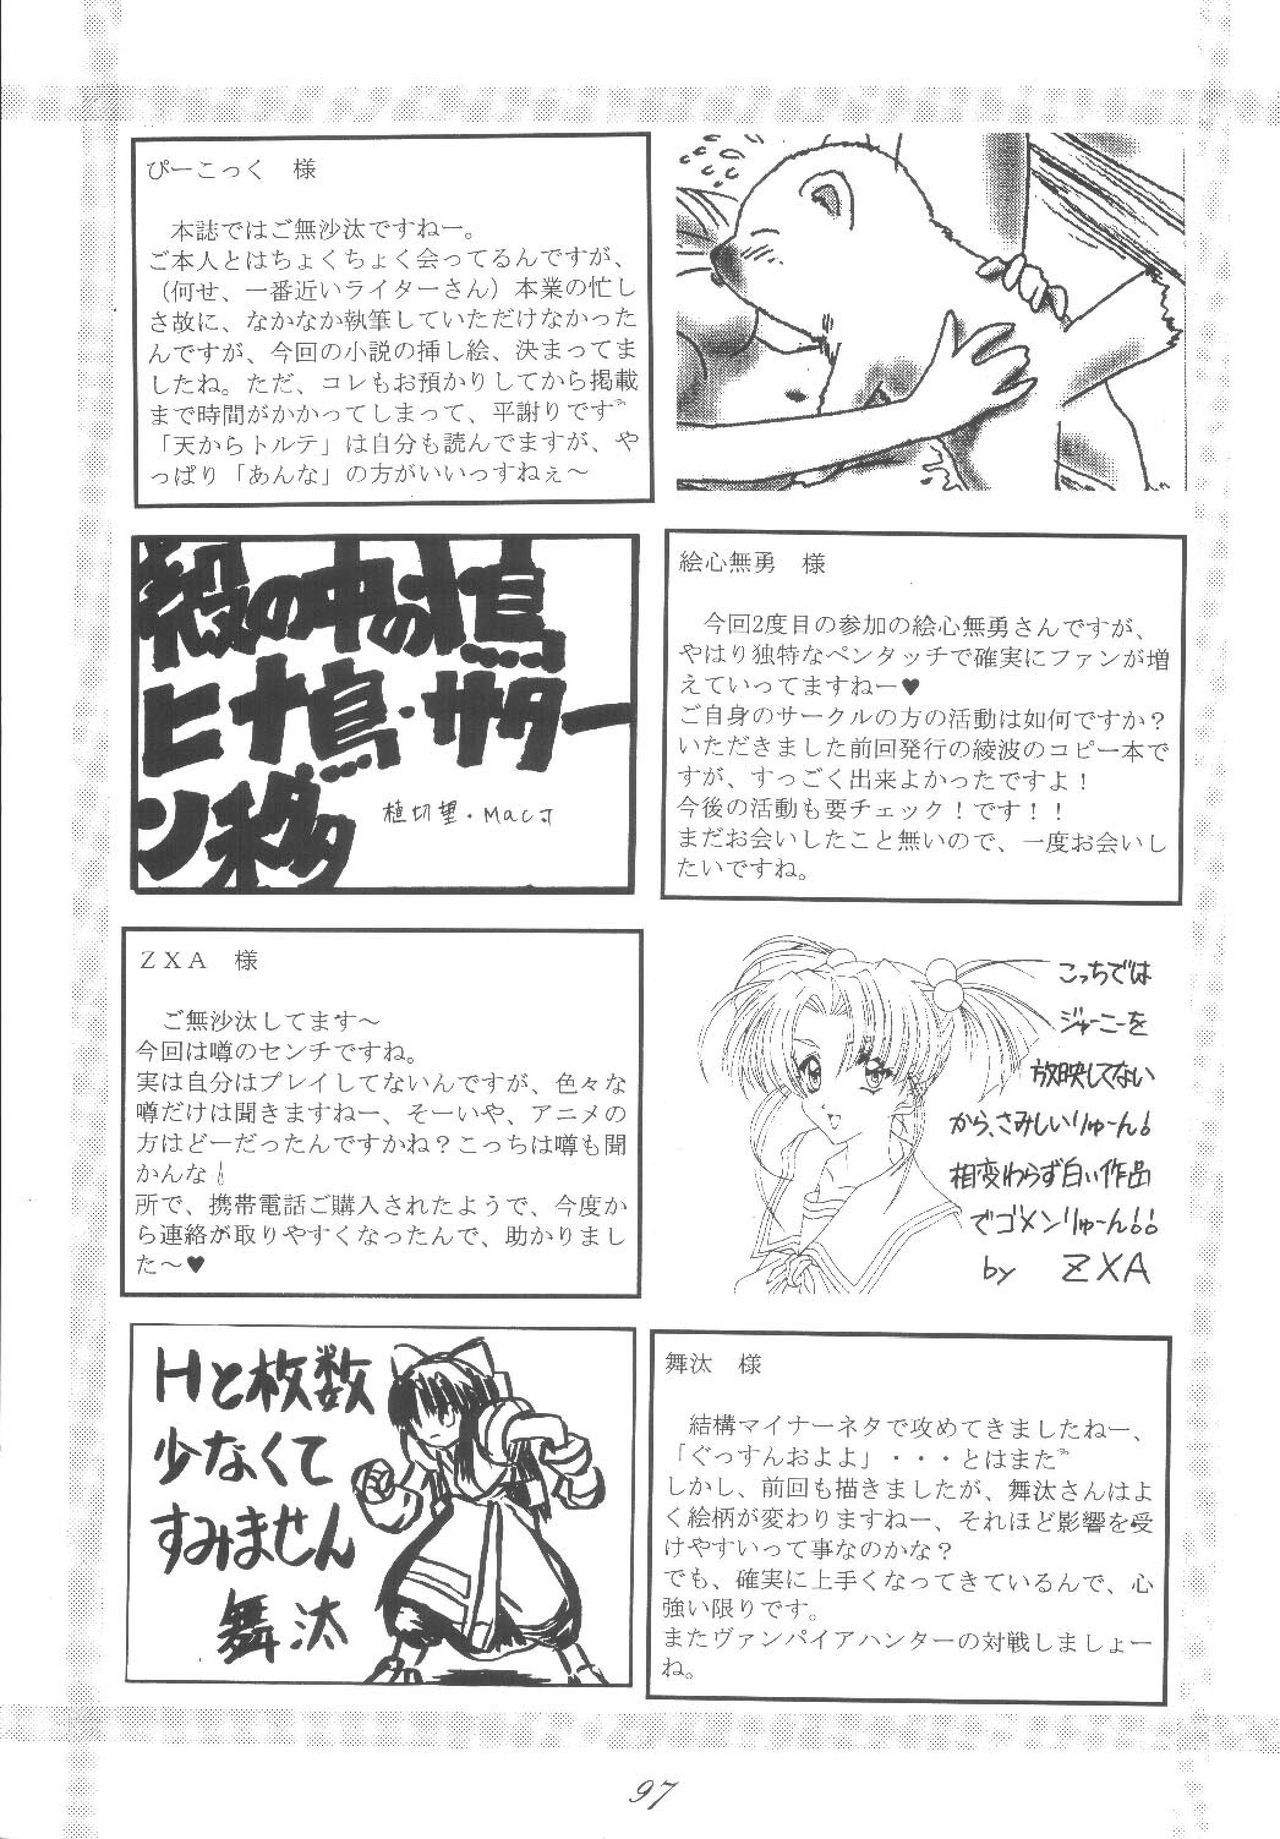 ぴーこっく　様
本誌ではご無沙汰ですねー。
ご本人とはちょくちょく会ってるんですが、
（何せ、一番近いライターさん）本業の忙し
さ故に、なかなか執筆していただけなかった
んですが、今回の小説の挿し絵、決まってま
したね。ただ、コレもお預かりしてから掲載
まで時間がかかってしまって、平謝りです
「天からトルテ」は自分も読んでますが、や
っぱり「あんな」の方がいいっすねぇ～
殻の中の雛
ヒナ鳥・サター
ン移
植切望・MacJ
絵心無勇　様
今回2度目の参加の絵心無勇さんですが、
やはり独特なペンタッチで確実にファンが増
えていってますねー♥
ご自身のサークルの方の活動は如何ですか？
いただきました前回発行の綾波のコピー本で
すが、すっごく出来よかったですよ！
今後の活動も要チェック！です！！
まだお会いしたこと無いので、一度お会いし
たいですね。
ＺＸＡ　様
ご無沙汰してます～
今回は噂のセンチですね。
実は自分はプレイしてないんですが、色々な
噂だけは聞きますねー、そーいや、アニメの
方はどーだったんですかね？こっちは噂も聞
かんな！
所で、携帯電話ご購入されたようで、今度か
ら連絡が取りやすくなったんで、助かりまし
た～♥
こっちでは
ジャーニーを
放映してない
から、さみしいりゅーん！
相変わらず白い作品
でゴメンりゅーん！！
by ZXA
Hと枚数
少なくて
すみません
舞汰
舞汰　様
結構マイナーネタで攻めてきましたねー、
「ぐっすんおよよ」・・・とはまた
しかし、前回も描きましたが、舞汰さんはよ
く絵柄が変わりますねー、それほど影響を受
けやすいって事なのかな？
でも、確実に上手くなってきているんで、心
強い限りです。
またヴァンパイアハンターの対戦しましょー
ね。
97